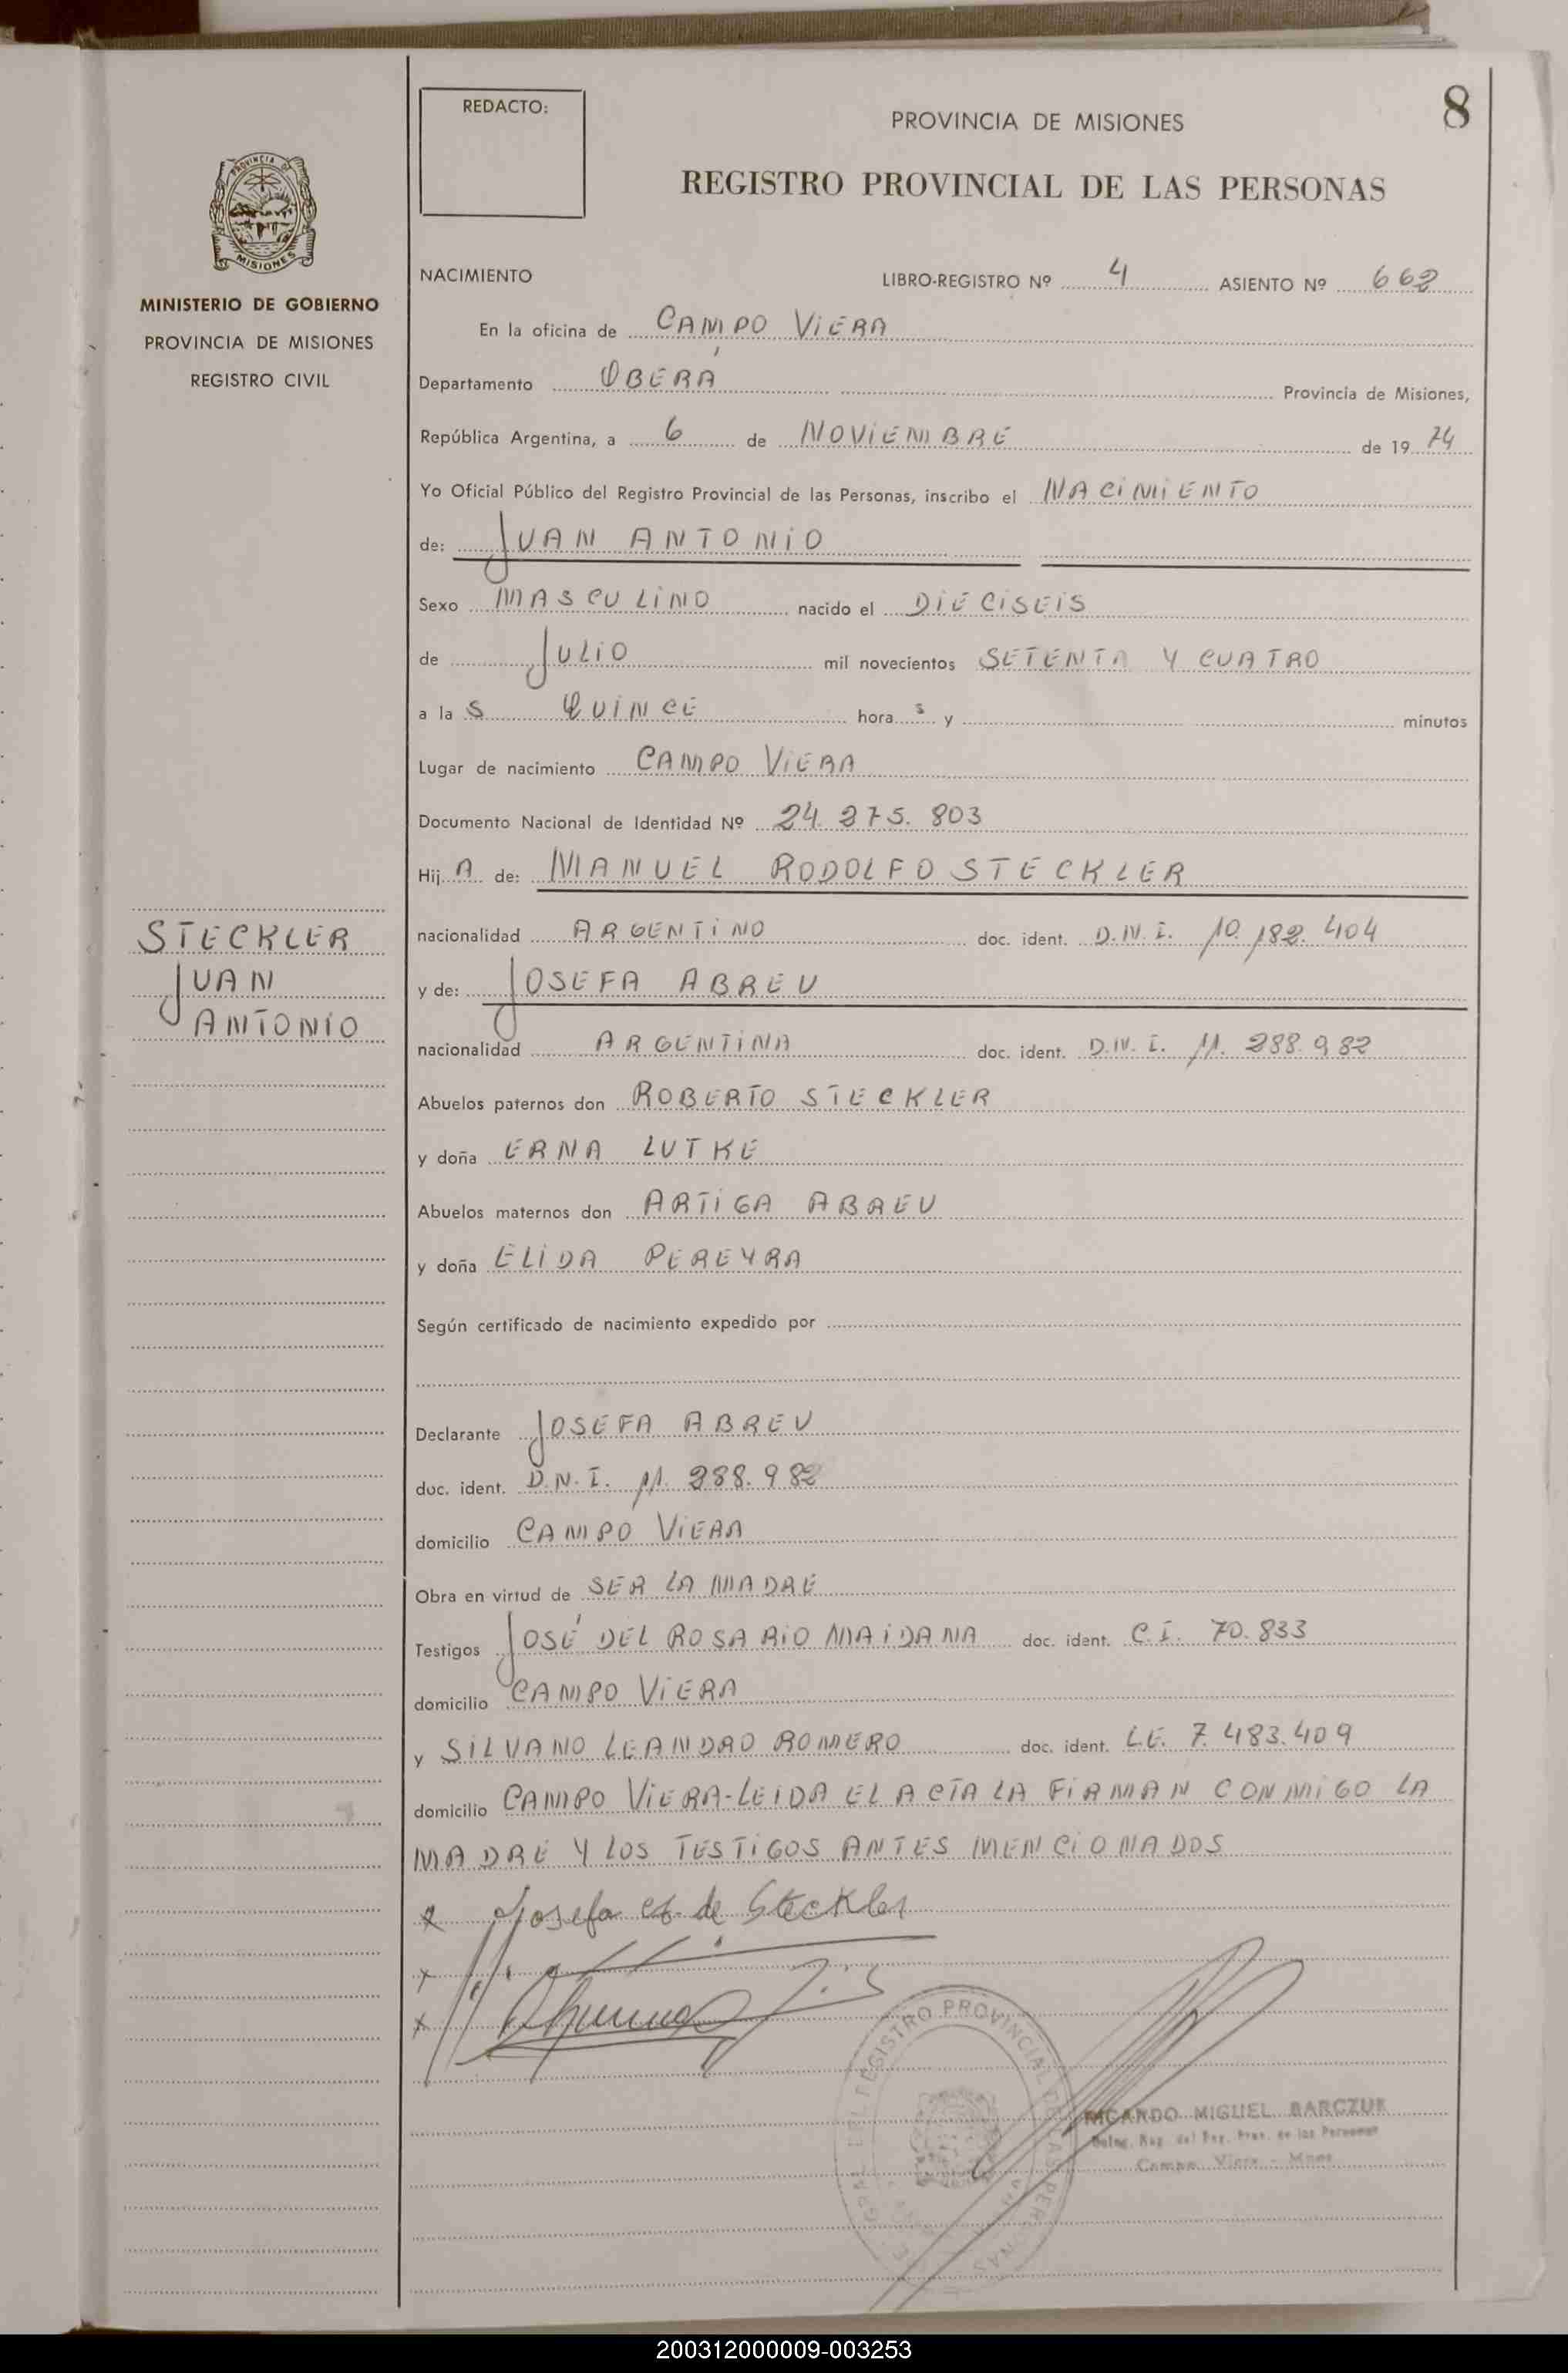 8
REDACTO:
PROVINCIA DE MISIONES
REGISTRO PROVINCIAL DE LAS PERSONAS
PROVINCIA DE
MISIONES
MINISTERIO DE GOBIERNO
PROVINCIA DE MISIONES
REGISTRO CIVIL
NACIMIENTO LIBRO-REGISTRO Nº 4 ASIENTO Nº 662
En la oficina de CAMPO VIERA
Departamento OBERÁ Provincia de Misiones,
República Argentina, a 6 de NOVIEMBRE de 19 74
Yo Oficial Público del Registro Provincial de las Personas, inscribo el NACIMIENTO
de: JUAN ANTONIO
Sexo MASCULINO nacido el DIECISEIS
de JULIO mil novecientos SETENTA Y CUATRO
a la S QUINCE hora s y minutos
Lugar de nacimiento CAMPO VIERA
Documento Nacional de Identidad Nº 24.275.803
Hij A de: MANUEL RODOLFO STECKLER
STECKLER
JUAN
ANTONIO
nacionalidad ARGENTINO doc. ident. D.N.I. 10.182.404
y de: JOSEFA ABREU
nacionalidad ARGENTINA doc. ident. D.N.I. 11.288.982
Abuelos paternos don ROBERTO STECKLER
y doña ERNA LUTKE
Abuelos maternos don ARTIGA ABREU
y doña ELIDA PEREYRA
Según certificado de nacimiento expedido por
Declarante JOSEFA ABREU
doc. ident. D.N.I. 11.288.982
domicilio CAMPO VIERA
Obra en virtud de SER LA MADRE
Testigos JOSÉ DEL ROSARIO MAIDANA doc. ident. C.I. 70.833
domicilio CAMPO VIERA
y SILVANO LEANDRO ROMERO doc. ident. L.E. 7.483.409
domicilio CAMPO VIERA-LEIDA EL ACTA LA FIRMAN CONMIGO LA
MADRE Y LOS TESTIGOS ANTES MENCIONADOS
Josefa de Steckler
REGISTRO PROVINCIAL DE LAS PERSONAS
RICARDO MIGUEL BARCZUK
Campo Viera - Mnes
200312000009-003253